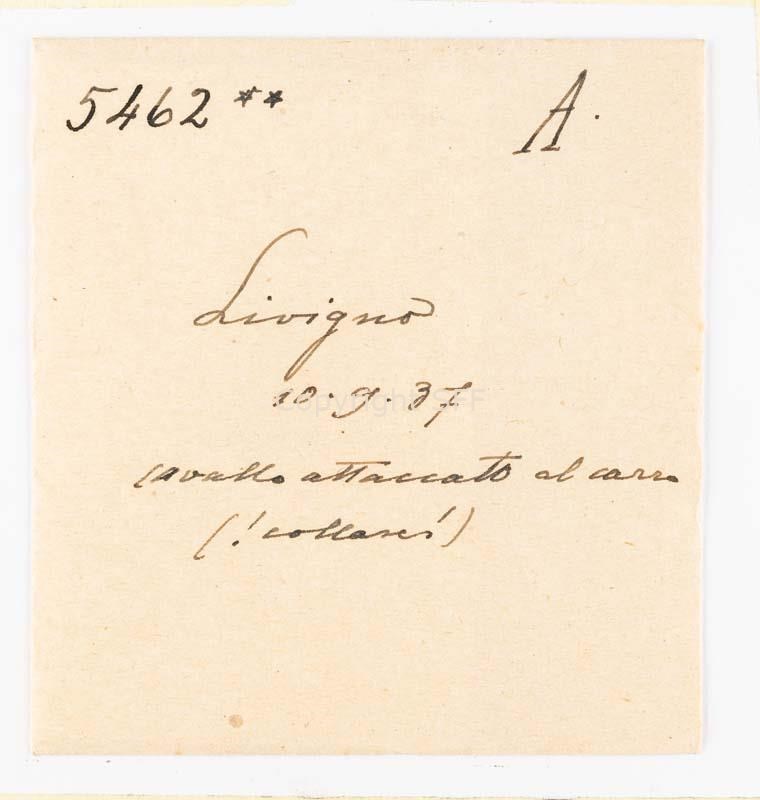 5462 **
A.
Livigno
10.9.37
Copyright SFF
cavallo attaccato al carro
(! collare!)